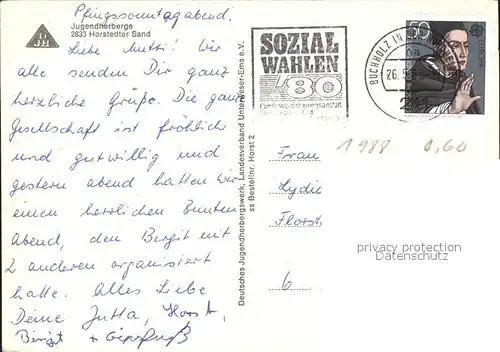 Pfingssonntagabend.
Jugendherberge
2833 Horstedter Sand
DJH
Liebe Mutti! Wir
alle senden Dir ganz
herzliche Grüße. Die ganze
Gesellschaft ist fröhlich
und gutwillig und
gestern abend hatten wir
einen herrlichen Bunten
Abend, den Birgit mit
2 anderen organisiert
hatte. Alles Liebe
Deine Jutta, Horst,
Birgit +
Deutsches Jugendherbergswerk, Landesverband Unterweser-Ems e.V.
ss Bestellnr. Horst 2
SOZIAL
WAHLEN
'80
BUCHHOLZ IN DER
26.5
50
1988 0,60
Frau
Lydie
Florst.
6
privacy protection
Datenschutz